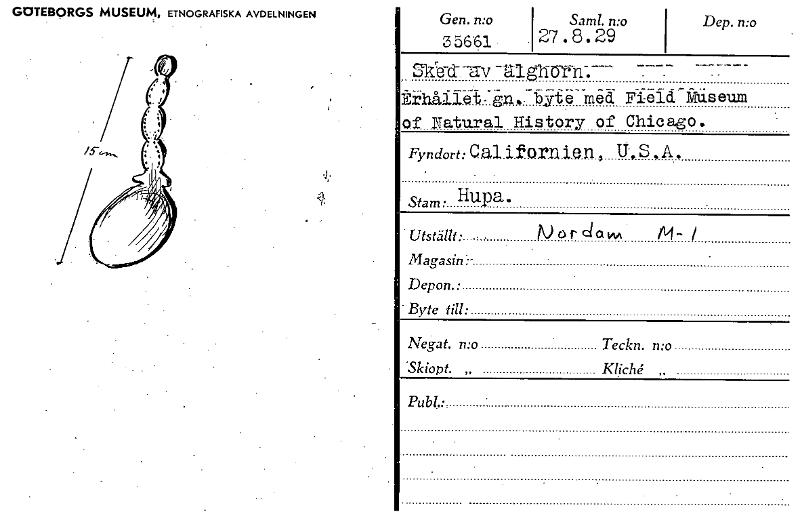 GÖTEBORGS MUSEUM, ETNOGRAFISKA AVDELNINGEN
15 cm
Gen. n:o Saml. n:o Dep. n:o
35661 27.8.29
Sked av älghorn.
Erhållet gn. byte med Field Museum
of Natural History of Chicago.
Fyndort: Californien, U.S.A.
Stam: Hupa.
Utställt: Nordam M-1
Magasin:
Depon.:
Byte till:
Negat. n:o Teckn. n:o
Skiopt. „ Kliché „
Publ.: